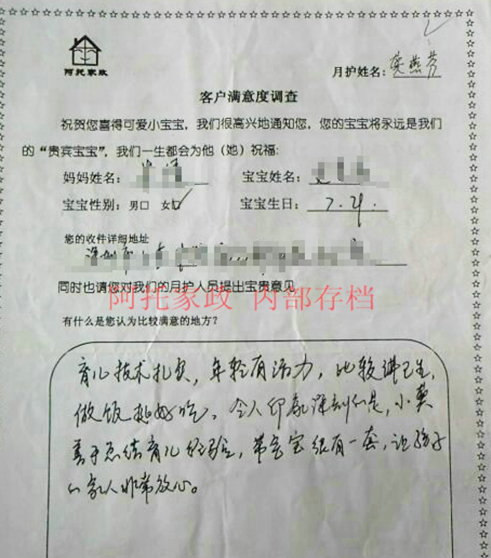 阿托家政
月护姓名:
客户满意度调查
祝贺您喜得可爱小宝宝,我们很高兴地通知您,您的宝宝将永远是我们
的“贵宾宝宝”,我们一生都会为他(她)祝福:
妈妈姓名: 宝宝姓名:
宝宝性别: 男□ 女□ 宝宝生日: 7.21.
您的收件详细地址
同时也请您对我们的月护人员提出宝贵意见
阿托家政 内部存档
有什么是您认为比较满意的地方?
育儿技术扎实,年轻有活力,比较讲卫生,
做饭挺好吃。令人印象深刻的是,小英
善于总结育儿经验,带宝宝很有一套,让孩子
的家人非常放心。